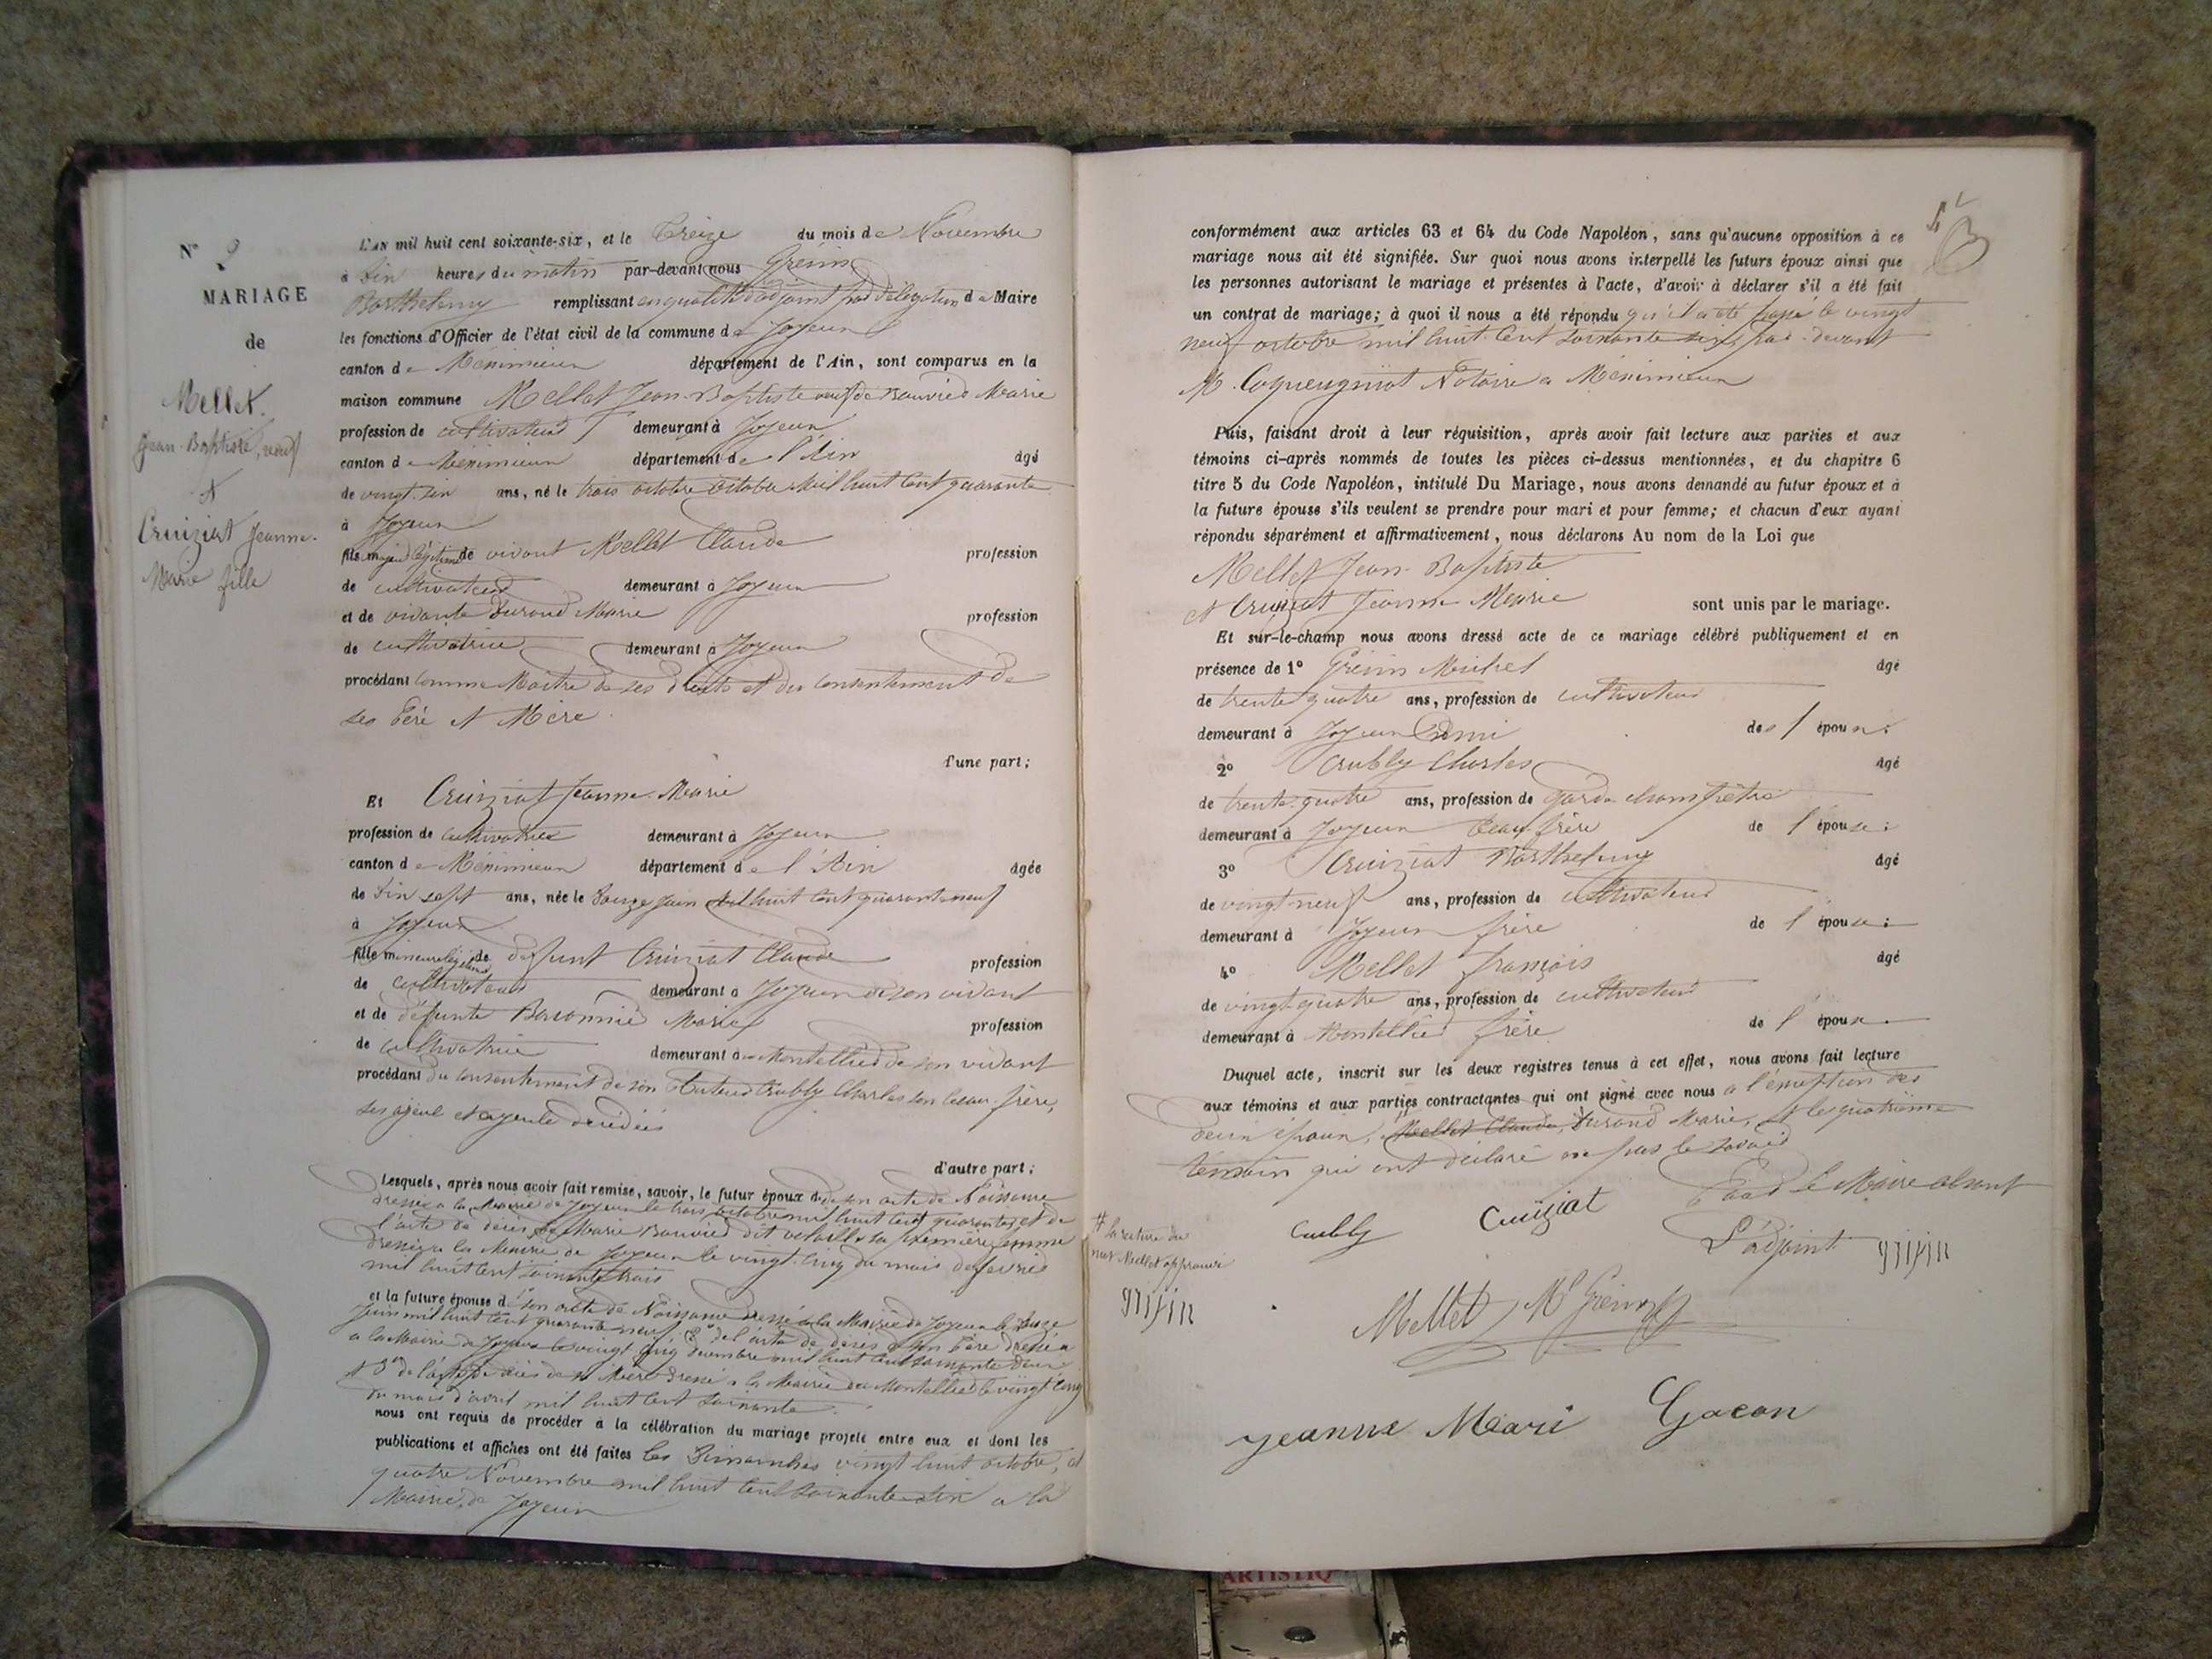 N° 9
MARIAGE
de
Mellet
Jean-Baptiste, veuf
et
Cruiziat Jeanne-
Marie fille
L'AN mil huit cent soixante-six, et le Treize du mois de Novembre
à Six heures du matin par-devant nous Grévin
Barthelemy remplissant en qualité d'adjoint par délégation de Maire
les fonctions d'Officier de l'état civil de la commune de Joyeux
canton de Méximieux département de l'Ain, sont comparus en la
maison commune Mellet Jean-Baptiste veuf de Bouvier Marie
profession de cultivateur demeurant à Joyeux
canton de Méximieux département de l'Ain âgé
de vingt-six ans, né le trois octobre octobre mil huit cent quarante
à Joyeux
fils majeur légitime de vivant Mellet Claude profession
de cultivateur demeurant à Joyeux
et de vivante Durand Marie profession
de cultivatrice demeurant à Joyeux
procédant comme Maitre de ses droits et du consentement de
ses Père et Mère
d'une part;
Et Cruiziat Jeanne-Marie
profession de cultivatrice demeurant à Joyeux
canton de Méximieux département de l'Ain âgée
de Dix sept ans, née le Douze Juin mil huit cent quarante neuf
à Joyeux
fille mineure légitime de défunt Cruiziat Claude profession
de cultivateur demeurant à Joyeux de son vivant
et de défunte Marie profession
de cultivatrice demeurant à Montellier de son vivant
procédant du consentement de son Tuteur Crubly Charles son beau-frère,
ses ayeul et ayeule décédés
d'autre part;
Lesquels, après nous avoir fait remise, savoir, le futur époux de son acte de Naissance
dressé à la Mairie de Joyeux le trois octobre mil huit cent quarante, et de
l'acte de décès de Marie Bouvier dit sa première femme
dressé à la Mairie de Joyeux le vingt-cinq du mois de février
mil huit cent soixante trois
et la future épouse d 1° son acte de Naissance dressé à la Mairie de Joyeux le Douze
Juin mil huit cent quarante neuf, 2° de l'acte de décès de son Père dressé
à la Mairie de Joyeux le vingt cinq décembre mil huit cent soixante deux
et 3° de l'acte de décès de sa Mère dressé à la Mairie du Montellier le vingt cinq
du mois d'avril mil huit cent soixante
nous ont requis de procéder à la célébration du mariage projeté entre eux et dont les
publications et affiches ont été faites les Dimanches vingt huit octobre, et
quatre Novembre mil huit cent soixante-six à la
Mairie de Joyeux
conformément aux articles 63 et 64 du Code Napoléon, sans qu'aucune opposition à ce
mariage nous ait été signifiée. Sur quoi nous avons interpellé les futurs époux ainsi que
les personnes autorisant le mariage et présentes à l'acte, d'avoir à déclarer s'il a été fait
un contrat de mariage; à quoi il nous a été répondu qu'il a été passé le vingt
neuf octobre mil huit cent soixante six par-devant
M. Coqueugniot Notaire à Méximieux
Puis, faisant droit à leur réquisition, après avoir fait lecture aux parties et aux
témoins ci-après nommés de toutes les pièces ci-dessus mentionnées, et du chapitre 6
titre 5 du Code Napoléon, intitulé Du Mariage, nous avons demandé au futur époux et à
la future épouse s'ils veulent se prendre pour mari et pour femme; et chacun d'eux ayant
répondu séparément et affirmativement, nous déclarons Au nom de la Loi que
Mellet Jean-Baptiste
et Cruiziat Jeanne-Marie sont unis par le mariage.
Et sur-le-champ nous avons dressé acte de ce mariage célébré publiquement et en
présence de 1° Grévin Michel âgé
de trente quatre ans, profession de cultivateur
demeurant à Joyeux ami de l'époux:
2° Crubly Charles âgé
de trente-quatre ans, profession de Garde champêtre
demeurant à Joyeux beau-frère de l'épouse:
3° Cruiziat Barthelemy âgé
de vingt-neuf ans, profession de cultivateur
demeurant à Joyeux frère de l'épouse:
4° Mellet François âgé
de vingt-quatre ans, profession de cultivateur
demeurant à Montellier frère de l'époux
Duquel acte, inscrit sur les deux registres tenus à cet effet, nous avons fait lecture
aux témoins et aux parties contractantes qui ont signé avec nous à l'exception des
deux époux, Mellet Claude, Durand Marie, et le quatrième
témoin qui ont déclaré ne pas le savoir
# la rature du
mot Mellet approuvé
Crubly Cruiziat Pour le Maire absent
L'adjoint
Mellet M Grévin
jeanne Mari Gacon